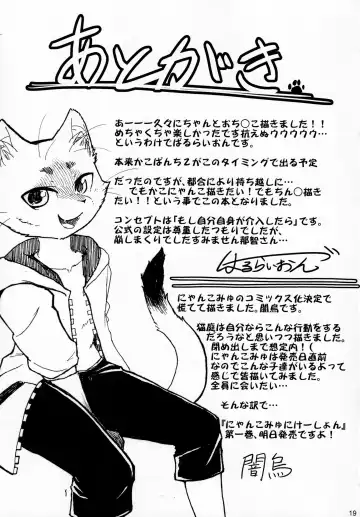 あとがき
あーーー久々にちゃんとおち○こ描きました！！
めちゃくちゃ楽しかったです抗えぬウウウウウ…
というわけでぱるらいおんです。
本来かこばんち２がこのタイミングで出る予定
だったのですが、都合により持ち越しに…
でもかこにゃん描きたい！でもちん○描き
たい！！という事でこの本となりました。
コンセプトは『もし自分自身が介入したら』です。
公式の設定は尊重したつもりでしたが、
崩しまくりでしたすみません那智さん…
はるらいおん
にゃんこみゅのコミックス化決定で
慌てて描きました。闇烏です。
猫庭は自分ならこんな行動をする
だろうなと思いつつ描きました。
閉め出しまで想定内！(
にゃんこみゅは発売日直前
なのでこんな子達がいるよって
感じで皆描いてみました。
全員に会いたい…
そんな訳で、
『にゃんこみゅにけーしょん』
第一巻、明日発売ですよ！
闇烏
19